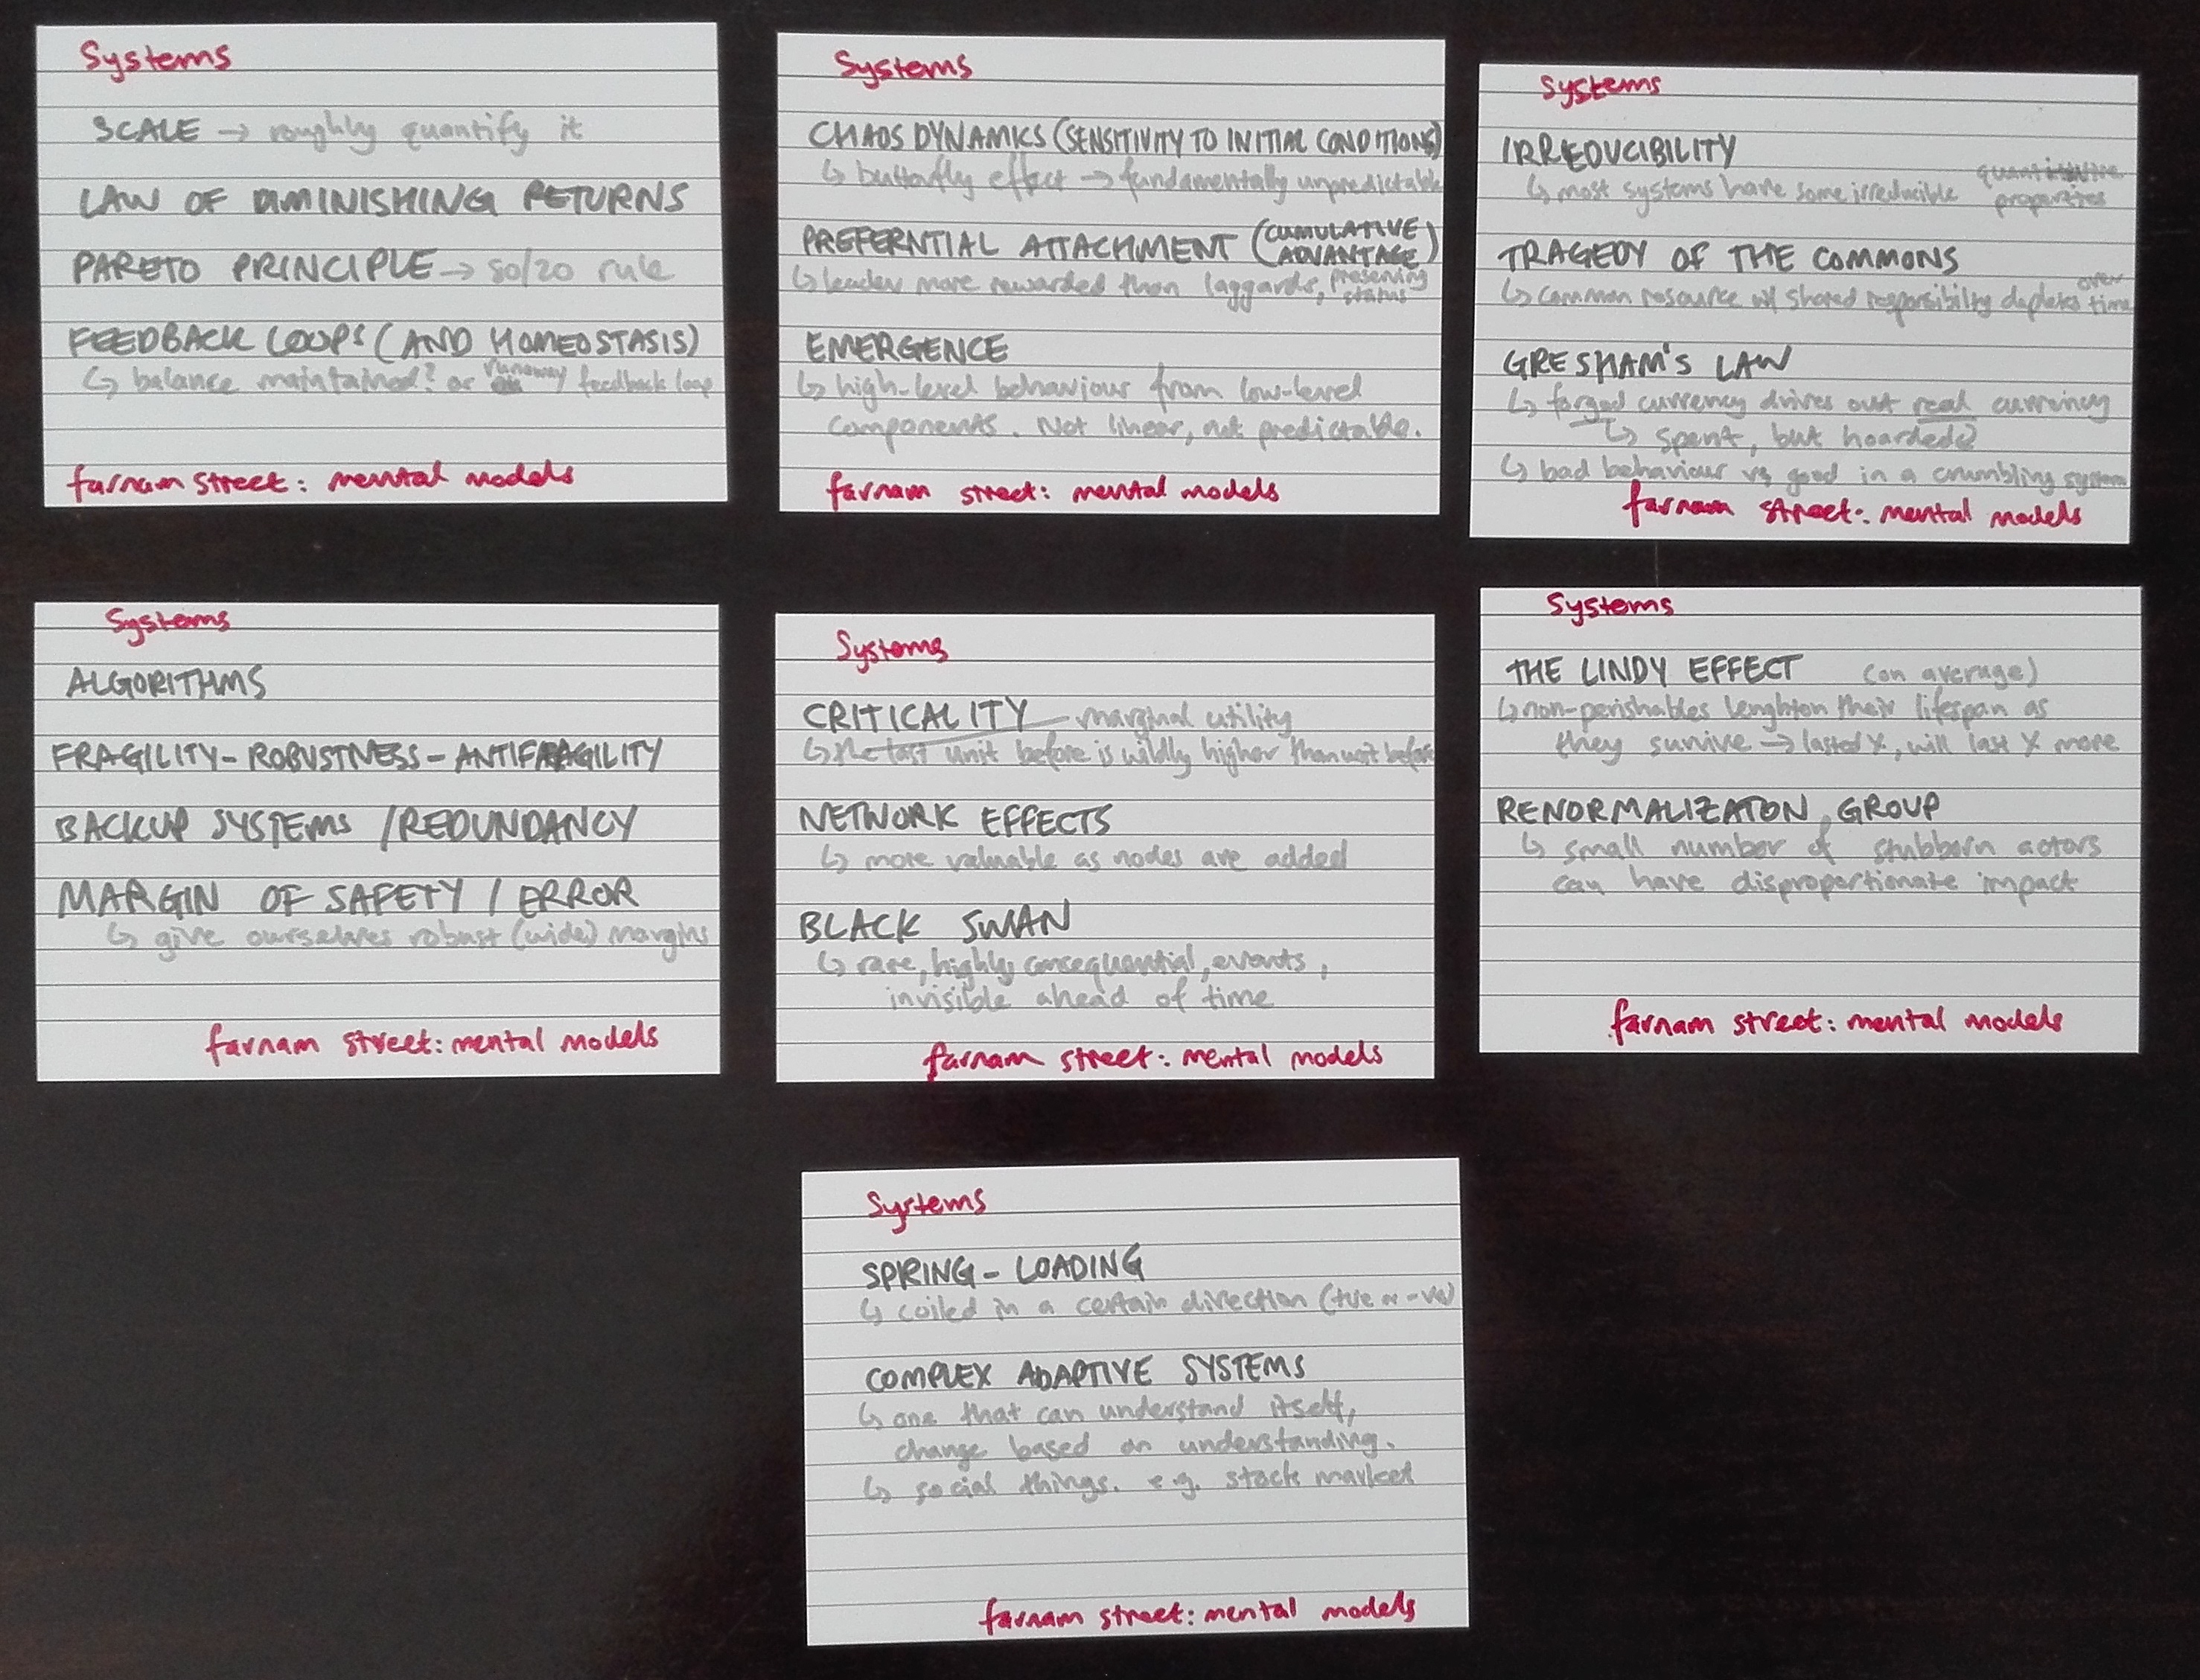 Systems
SCALE → roughly quantify it
LAW OF DIMINISHING RETURNS
PARETO PRINCIPLE → 80/20 rule
FEEDBACK LOOPS (AND HOMEOSTASIS)
↳ balance maintained? or runaway feedback loop
farnam street: mental models
Systems
CHAOS DYNAMICS (SENSITIVITY TO INITIAL CONDITIONS)
↳ butterfly effect → fundamentally unpredictable
PREFERNTIAL ATTACHMENT (CUMULATIVE ADVANTAGE)
↳ leader more rewarded than laggards, preserving status
EMERGENCE
↳ high-level behaviour from low-level
components. Not linear, not predictable.
farnam street: mental models
Systems
IRREDUCIBILITY
↳ most systems have some irreducible quantitative properties
TRAGEDY OF THE COMMONS
↳ common resource w/ shared responsibility depletes over time
GRESHAM'S LAW
↳ forged currency drives out real currency
↳ spent, but hoarded
↳ bad behaviour vs good in a crumbling system
farnam street: mental models
Systems
ALGORITHMS
FRAGILITY - ROBUSTNESS - ANTIFRAGILITY
BACKUP SYSTEMS / REDUNDANCY
MARGIN OF SAFETY / ERROR
↳ give ourselves robust (wide) margins
farnam street: mental models
Systems
CRITICALITY — marginal utility
↳ the last unit before is wildly higher than unit before
NETWORK EFFECTS
↳ more valuable as nodes are added
BLACK SWAN
↳ rare, highly consequential, events,
invisible ahead of time
farnam street: mental models
Systems
THE LINDY EFFECT (on average)
↳ non-perishables lenghton their lifespan as
they survive → lasted X, will last X more
RENORMALIZATON GROUP
↳ small number of stubborn actors
can have disproportionate impact
farnam street: mental models
Systems
SPRING - LOADING
↳ coiled in a certain direction (+ve or -ve)
COMPLEX ADAPTIVE SYSTEMS
↳ one that can understand itself,
change based on understanding.
↳ social things. e.g. stock market
farnam street: mental models